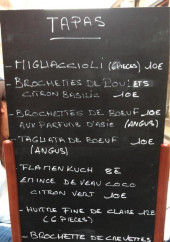 TAPAS
- MIGLIACCIOLI (6 PIECES) 10E
- BROCHETTES DE POULETS
CITRON BASILIC 10E
- BROCHETTES DE BOEUF 10E
AUX PARFUMS D'ASIE (ANGUS)
- TAGLIATA DE BOEUF 10E
(ANGUS)
FLAMENKUCH 8E
EMINCE DE VEAU COCO
CITRON VERT 10E
- HUITRE FINE DE CLAIRE 12E
(6 PIECES)
- BROCHETTE DE CREVETTES